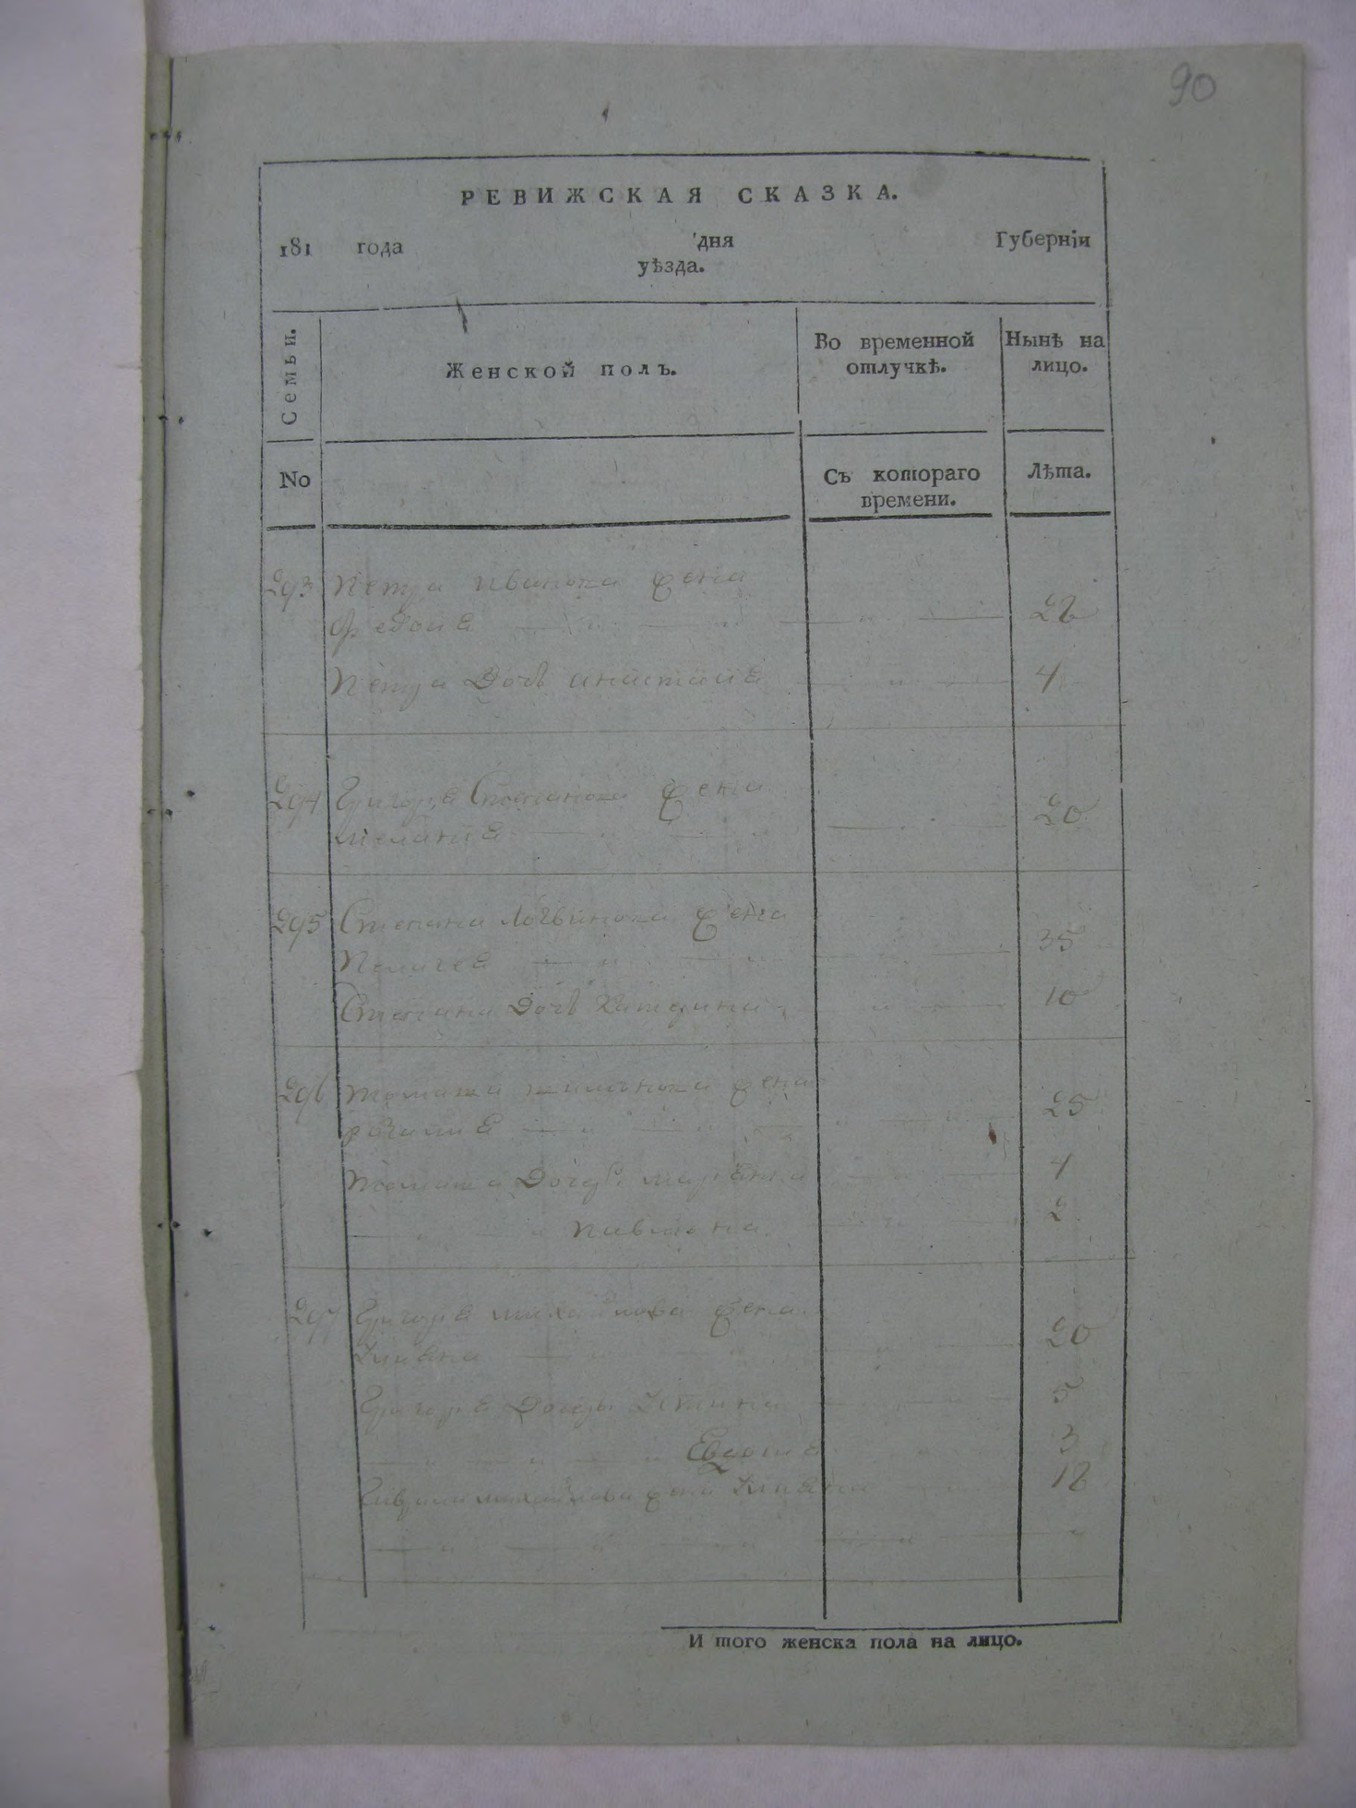 90
РЕВИЖСКАЯ СКАЗКА.
181 года дня Губерніи
уѣзда.
Семьи.
Женской полъ.
Во временной отлучкѣ.
Нынѣ на лицо.
No
Съ котораго времени.
Лѣта.
293 Петра Иванова жена
Федося 22
Петра дочь анастасия 4
294 Григорья Степанова жена
мелания 20
295 Степана Логвинова жена
Пелагея 35
Степана дочь Катерина 10
296 жена
25
дочери марьяна 4
2
297 Григорья михайлова жена
Ульяна 20
Григорья дочери Устина 5
Евдокия 3
Гаврила михайлова жена Ульяна 18
И того женска пола на лицо.